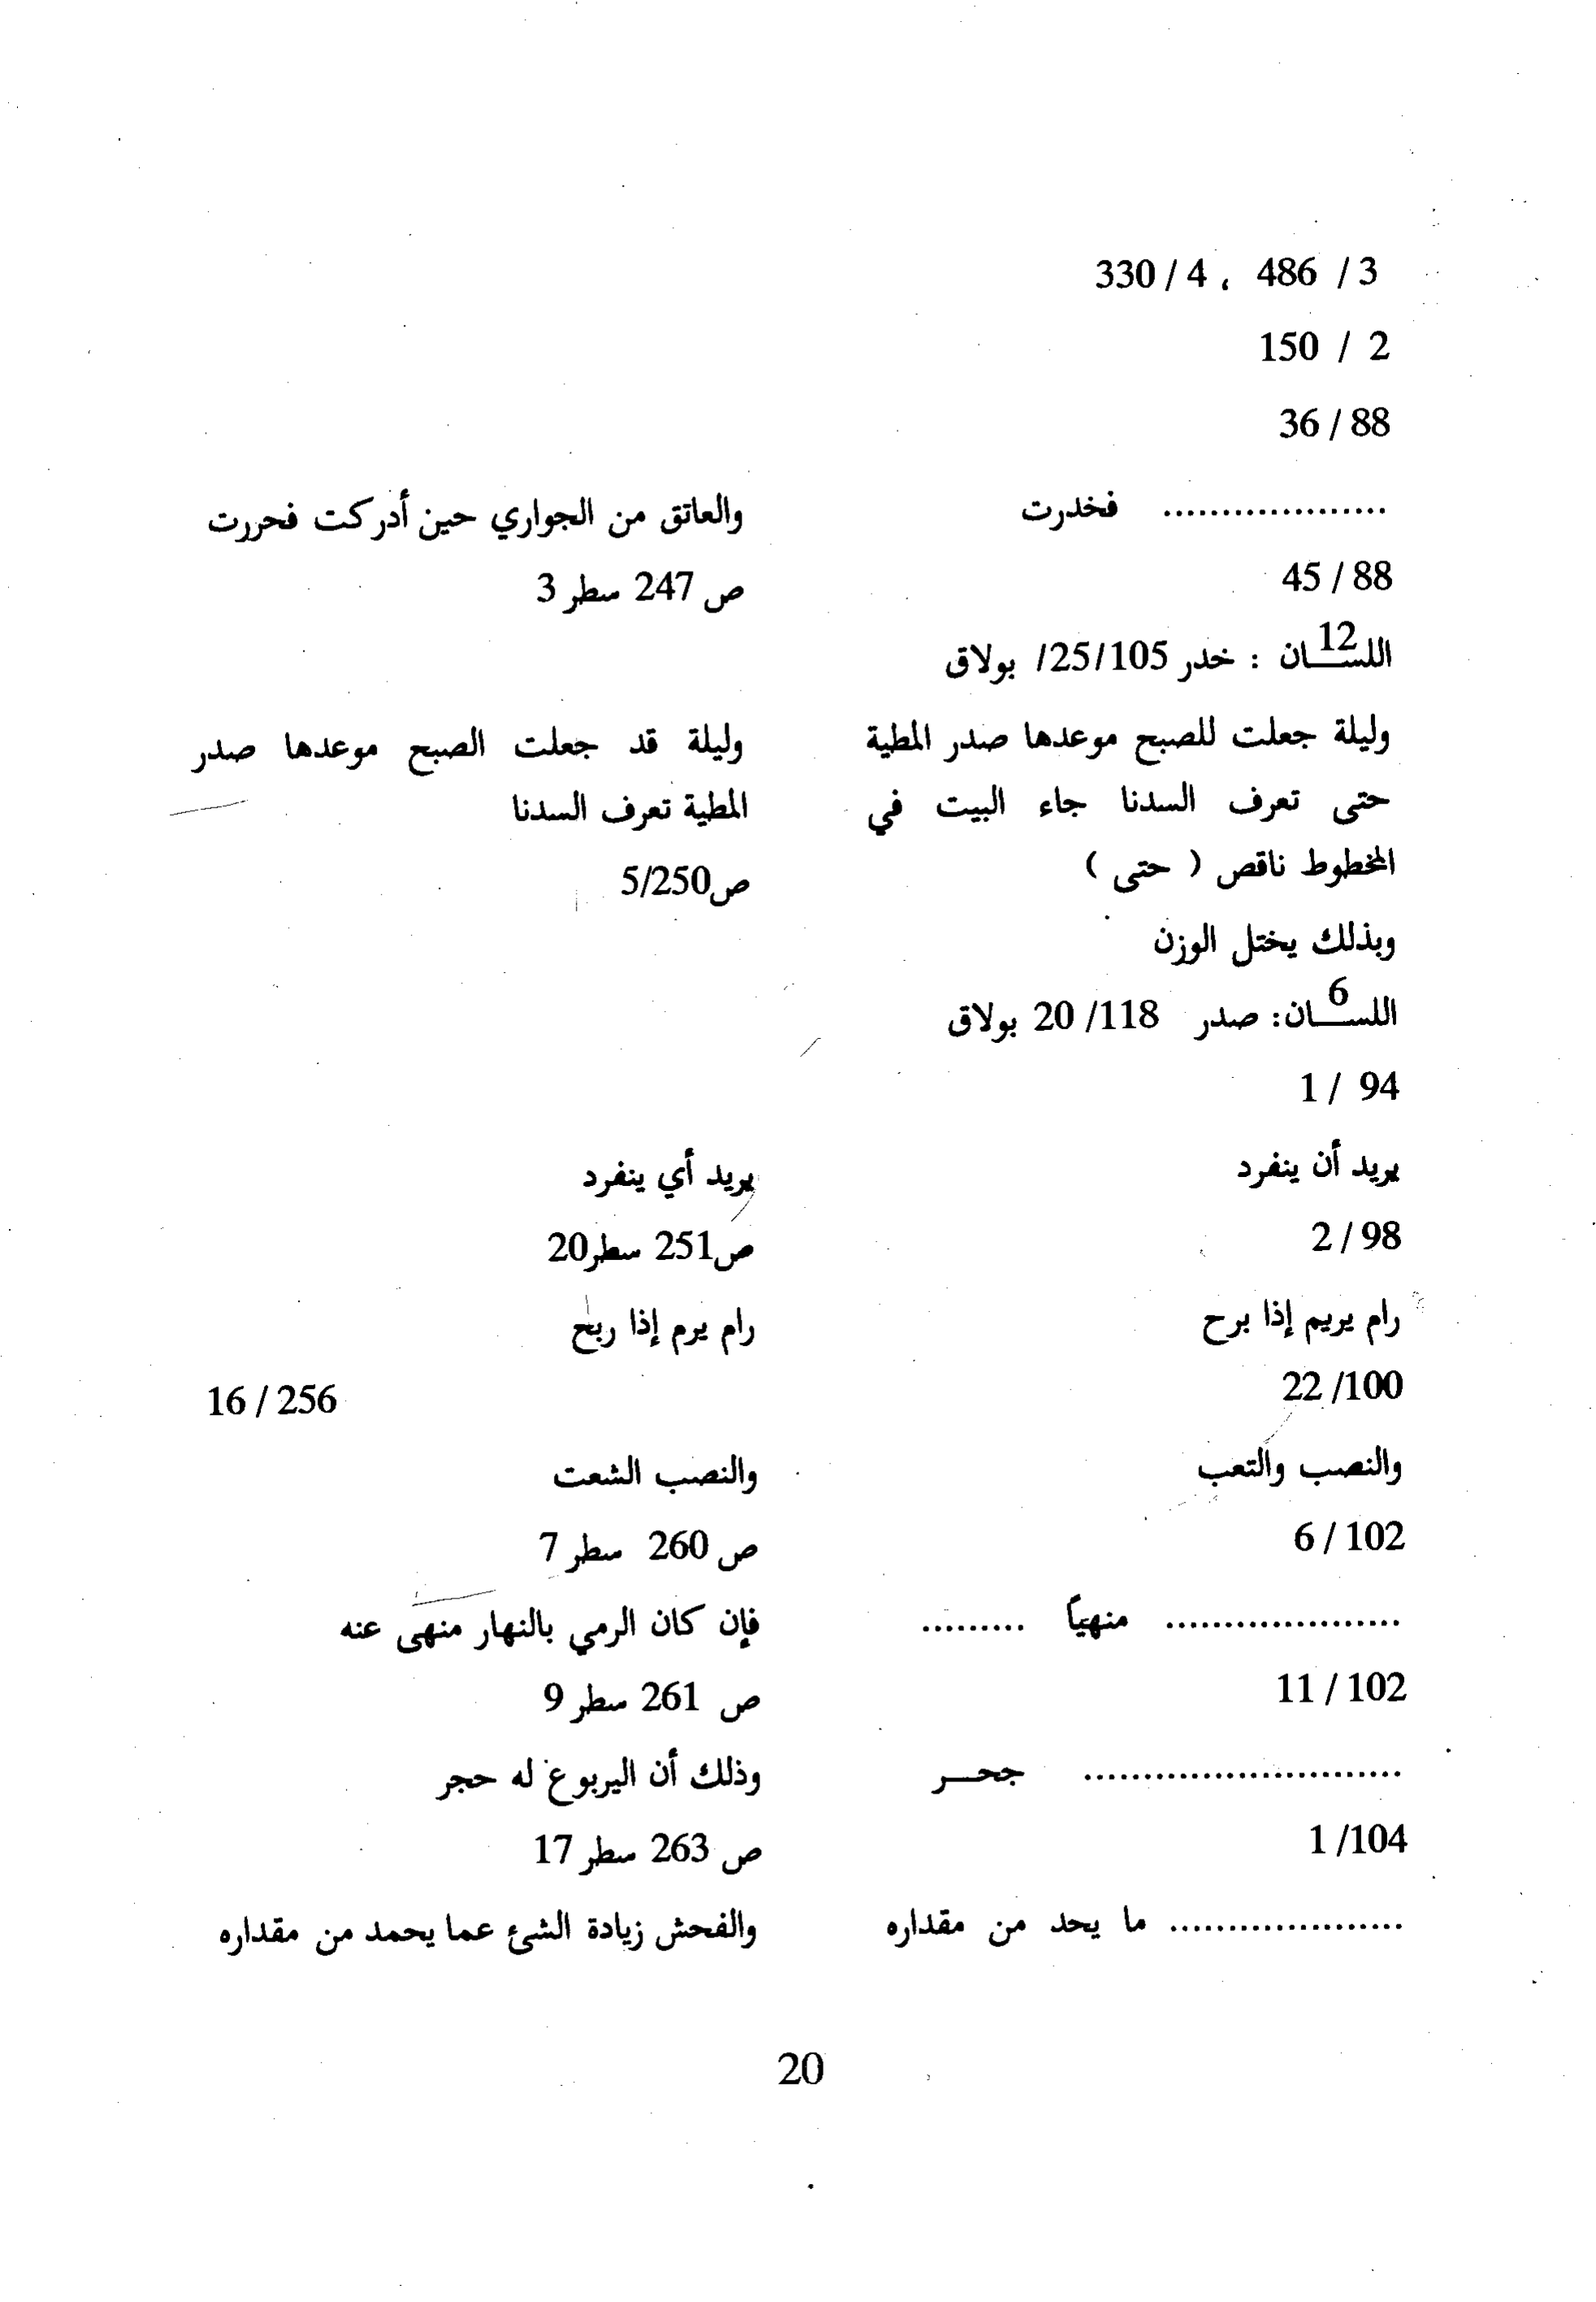 3 / 486 ، 4 / 330
2 / 150
88 / 36
................... فخدرت
والعاتق من الجواري حين أدركت فحررت
88 / 45
ص 247 سطر 3
اللسـان : خدر 12 105/25/ بولاق
وليلة جعلت للصبح موعدها صدر المطية
وليلة قد جعلت الصبح موعدها صدر
حتى تعرف السدنا جاء البيت في
المطية تعرف السدنا
المخطوط ناقص ( حتى )
ص5/250
وبذلك يختل الوزن
اللسـان: صدر 6 118/ 20 بولاق
94 / 1
يريد أن ينفرد
يريد أي ينفرد
98 / 2
ص251 سطر20
رام يريم إذا برح
رام يرم إذا ربح
100/ 22
256 / 16
والنصب والتعب
والنصب الشعت
102 / 6
ص 260 سطر 7
.................... منهياً .........
فإن كان الرمي بالنهار منهى عنه
102 / 11
ص 261 سطر 9
........................... جحــر
وذلك أن اليربوع له حجر
104/ 1
ص 263 سطر 17
.................... ما يحد من مقداره
والفحش زيادة الشئ عما يحمد من مقداره
20